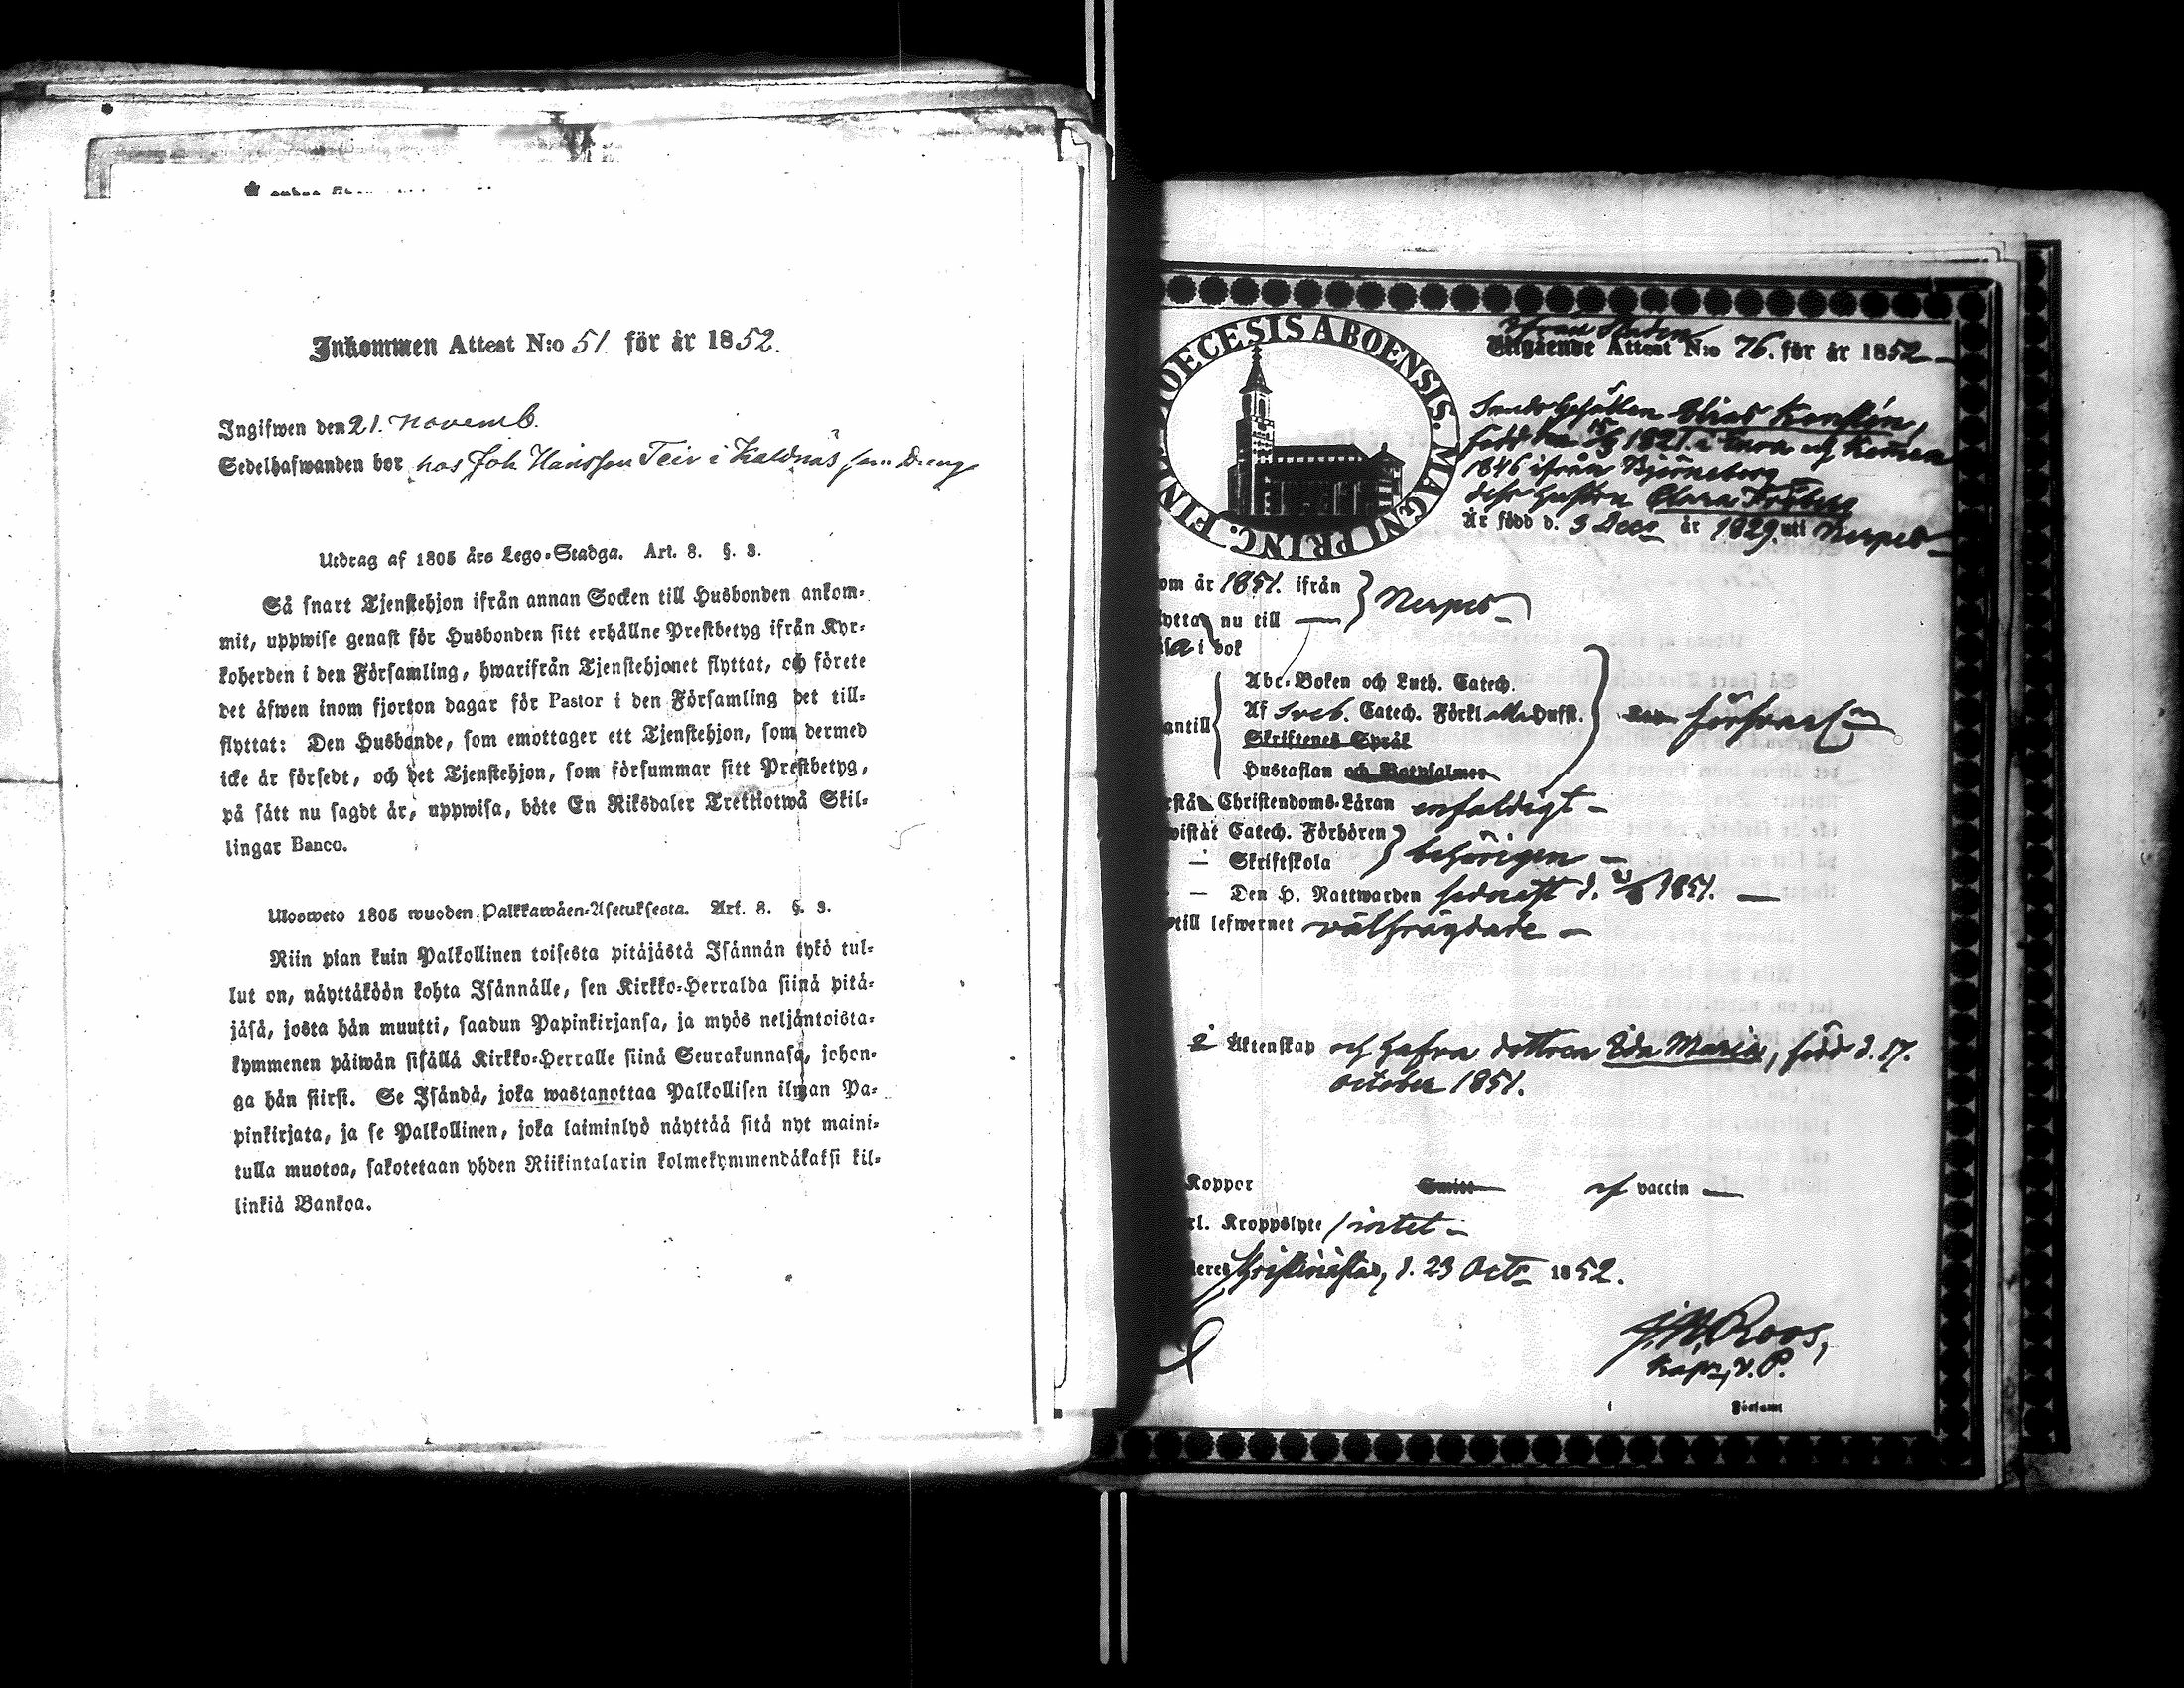 Inkommen Attest N:o 51. för år 1852.
Ingifwen den 21. Novemb.
Sedelhafwanden bor hos Joh Hansson Teir i Kaldnäs som Dreng
Utdrag af 1805 års Lego-Stadga. Art. 8. §. 3.
Så snart Tjenstehjon ifrån annan Socken till Husbonden ankom-
mit, uppwise genast för Husbonden sitt erhållne Prestbetyg ifrån Kyr-
koherden i den Församling, hwarifrån Tjenstehjonet flyttat, och förete
det äfwen inom fjorton dagar för Pastor i den Församling det till-
flyttat: Den Husbonde, som emottager ett Tjenstehjon, som dermed
icke är försedt, och det Tjenstehjon, som försummar sitt Prestbetyg,
på sätt nu sagdt är, uppwisa, böte En Riksdaler Trettiotwå Skil-
lingar Banco.
Ulosweto 1805 wuoden Palkkawäen-Asetuksesta. Art. 8. §. 3.
Niin pian kuin Palkollinen toisesta pitäjästä Isännän tykö tul-
lut on, näyttäköön kohta Isännälle, sen Kirkko-Herralda siinä pitä-
jäsä, josta hän muutti, saadun Papinkirjansa, ja myös neljäntoista-
kymmenen päiwän sisällä Kirkko-Herralle siinä Seurakunnasa, johon-
ga hän siirsi. Se Isändä, joka wastanottaa Palkollisen ilman Pa-
pinkirjata, ja se Palkollinen, joka laiminlyö näyttää sitä nyt maini-
tulla muotoa, sakotetaan yhden Riikintalarin kolmekymmendäkaksi kil-
linkiä Bankoa.
DIOECESIS ABOENSIS. MAGNI PRINC. FINL
ifrån Staden
Utgående Attest N:o 76. för år 1852
Elias
född den 15/9 1821. i och kommen
1846 ifrån Björneborg
dess hustru Clara
Är född d. 3 Decr år 1829 uti Nerpes
om år 1851. ifrån } Nerpes
nu till
i bok
Abc-Boken och Luth. Catech.
Af Sveb. Catech. Förkl
Skriftenes Språk
Hustaflan och Botpsalmer
försvarl
Christendoms-Läran enfaldigt
Catech. Förhören } behörigen
— Skriftskola
— Den H. Nattwarden sednast d. 1851.
till lefwernet välfrägdade
i Äktenskap och hafva dottren Eda Maria, född d. 17.
October 1851.
Koppor Smitt af vaccin
rl. Kroppslyte intet
Kristinestad, d. 23 Octr 1852.
Roos,
Kapn, v. P.
i Församl